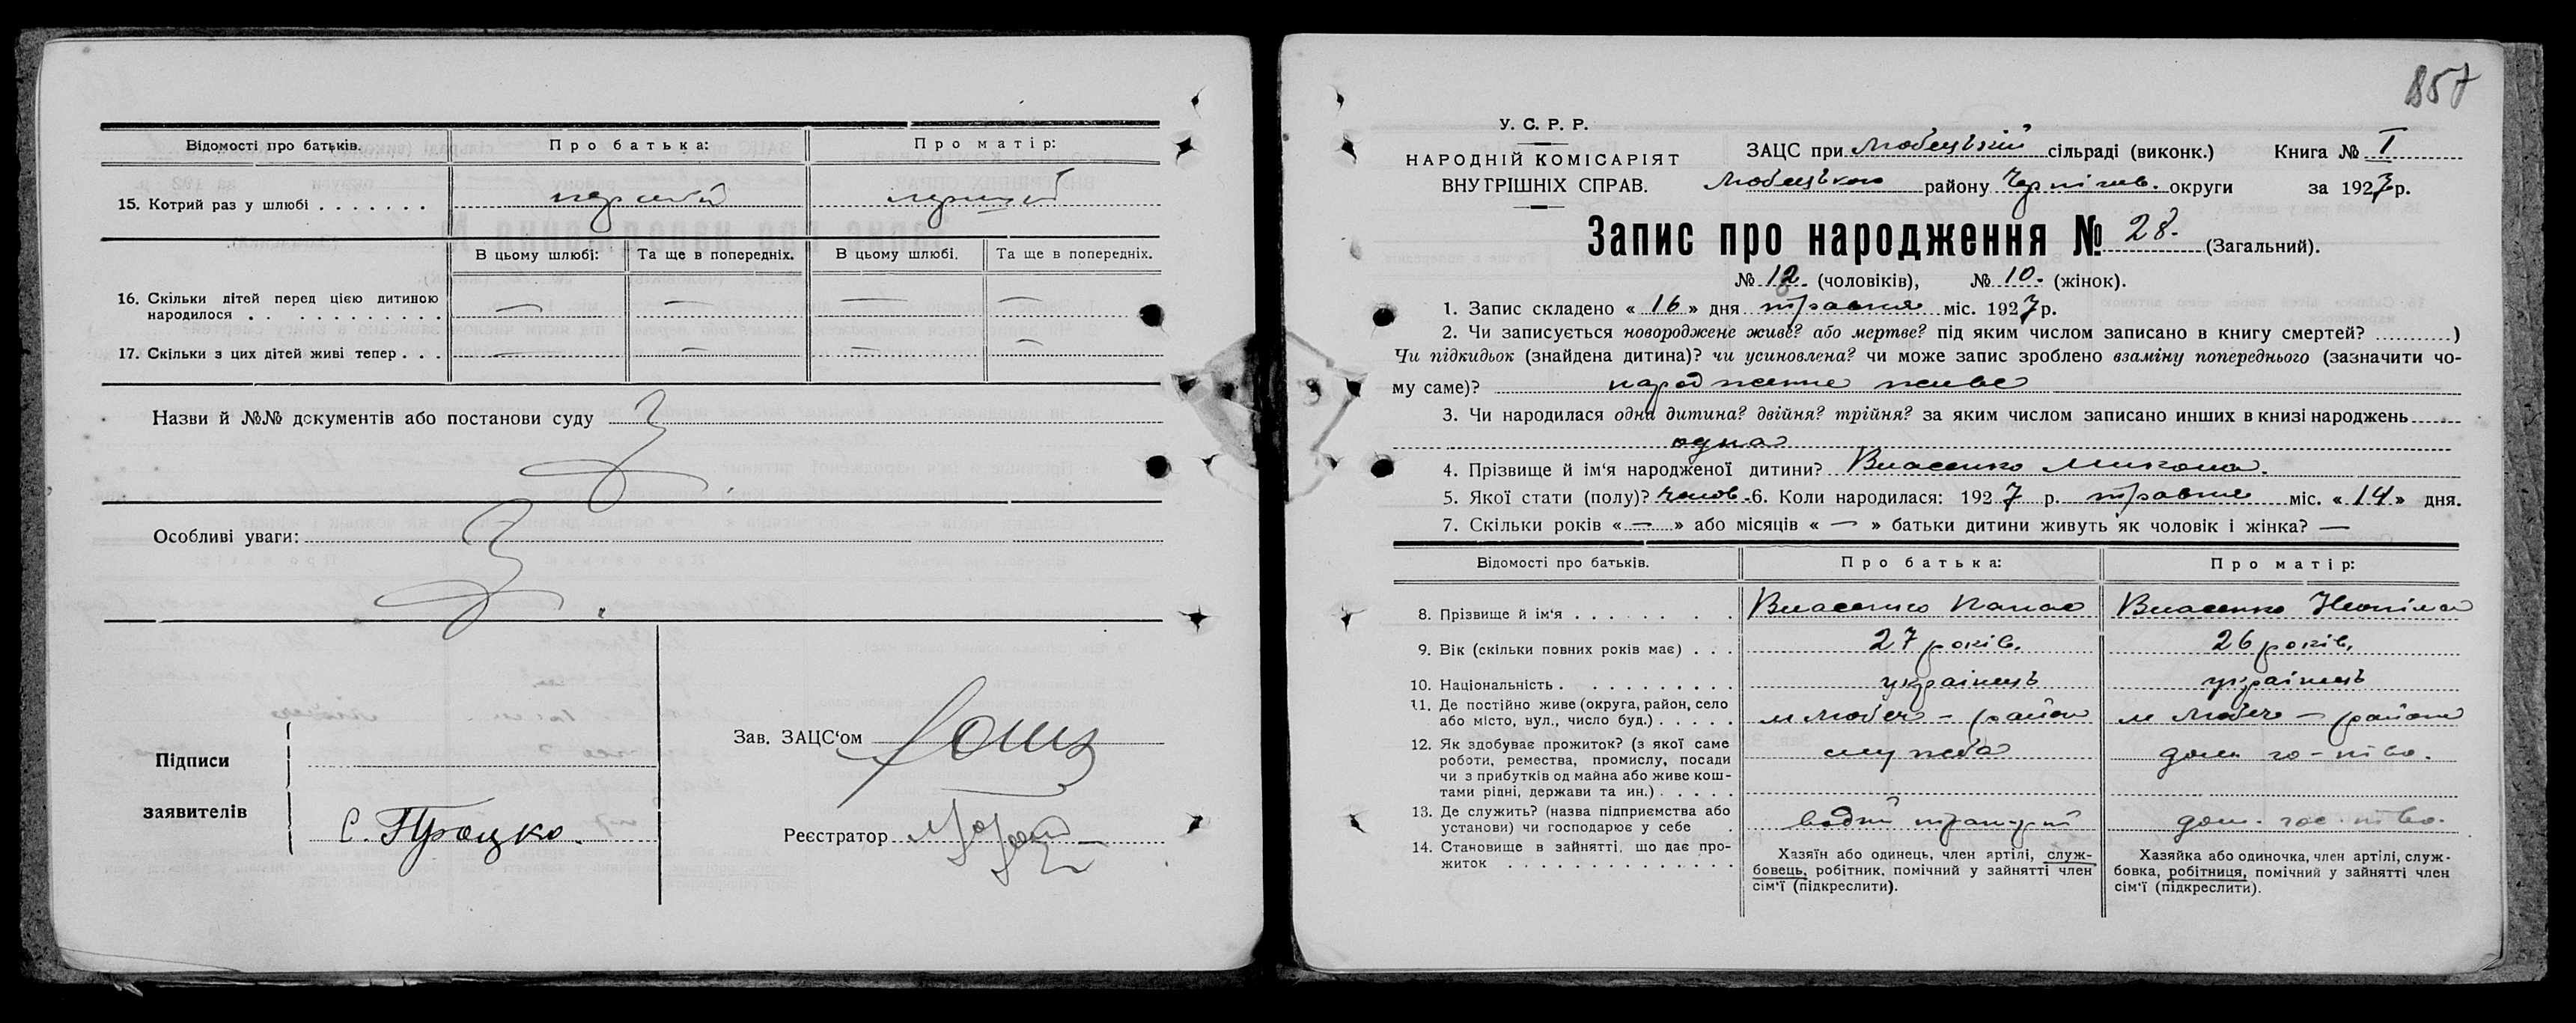 Відомості про батьків. Про батька: Про матір:
15. Котрий раз у шлюбі . . . . . . . перший перший
В цьому шлюбі: Та ще в попередніх. В цьому шлюбі. Та ще в попередніх.
16. Скільки дітей перед цією дитиною — — — —
народилося . . . . . . . . . . . .
17. Скільки з цих дітей живі тепер . . . — — — —
Назви й №№ документів або постанови суду
Особливі уваги:
Підписи
заявителів
С. Процко.
Зав. ЗАЦС‘ом
Реєстратор
857
У. С. Р. Р.
НАРОДНІЙ КОМІСАРІЯТ
ВНУТРІШНІХ СПРАВ.
ЗАЦС при Любецькій сільраді (виконк.) Книга № I
Любецького району Черніг. округи за 1927 р.
Запис про народження № 28. (Загальний).
№ 12. (чоловіків), № 10. (жінок).
1. Запис складено « 16 » дня травня міс. 1927 р.
2. Чи записується новороджене живе? або мертве? під яким числом записано в книгу смертей? ...........)
Чи підкидьок (знайдена дитина)? чи усиновлена? чи може запис зроблено взаміну попереднього (зазначити чо-
му саме)? народженне живе
3. Чи народилася одна дитина? двійня? трійня? за яким числом записано инших в книзі народжень
одна
4. Прізвище й ім‘я народженої дитини? Власенко Микола.
5. Якої стати (полу)? чолов. 6. Коли народилася: 1927 р. травня міс. « 14 » дня.
7. Скільки років « — » або місяців « — » батьки дитини живуть як чоловік і жінка? —
Відомості про батьків. Про батька: Про матір:
8. Прізвище й ім‘я . . . . . . . . Власенко Панас Власенко
9. Вік (скільки повних років має) . . . 27 років. 26 років.
10. Національність . . . . . . . . . . українець українець
11. Де постійно живе (округа, район, село
або місто, вул., число буд.) . . . . . м Любеч – район м Любеч – район
12. Як здобуває прожиток? (з якої саме служба дом го-ство.
роботи, ремества, промислу, посади
чи з прибутків од майна або живе кош-
тами рідні, держави та ин.) . . . . .
13. Де служить? (назва підприємства або
установи) чи господарює у себе . водний дом. гос-тво.
14. Становище в зайнятті, що дає про-
житок . . . . . . . . . . . . . .
Хазяїн або одинець, член артілі, служ-
бовець, робітник, помічний у зайнятті член
сім‘ї (підкреслити).
Хазяйка або одиночка, член артілі, служ-
бовка, робітниця, помічний у зайнятті член
сім‘ї (підкреслити).